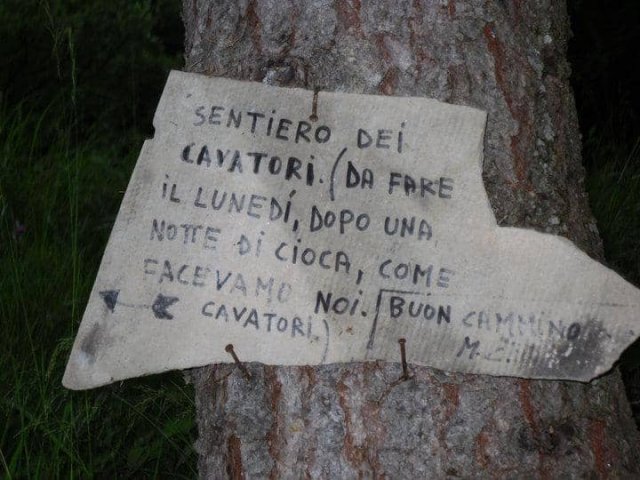 SENTIERO DEI
CAVATORI. (DA FARE
iL LUNEDÍ, DOPO UNA
NOTTE DI CIOCA, COME
FACEVAMO NOI.
CAVATORI.)
BUON CAMMINO
M.